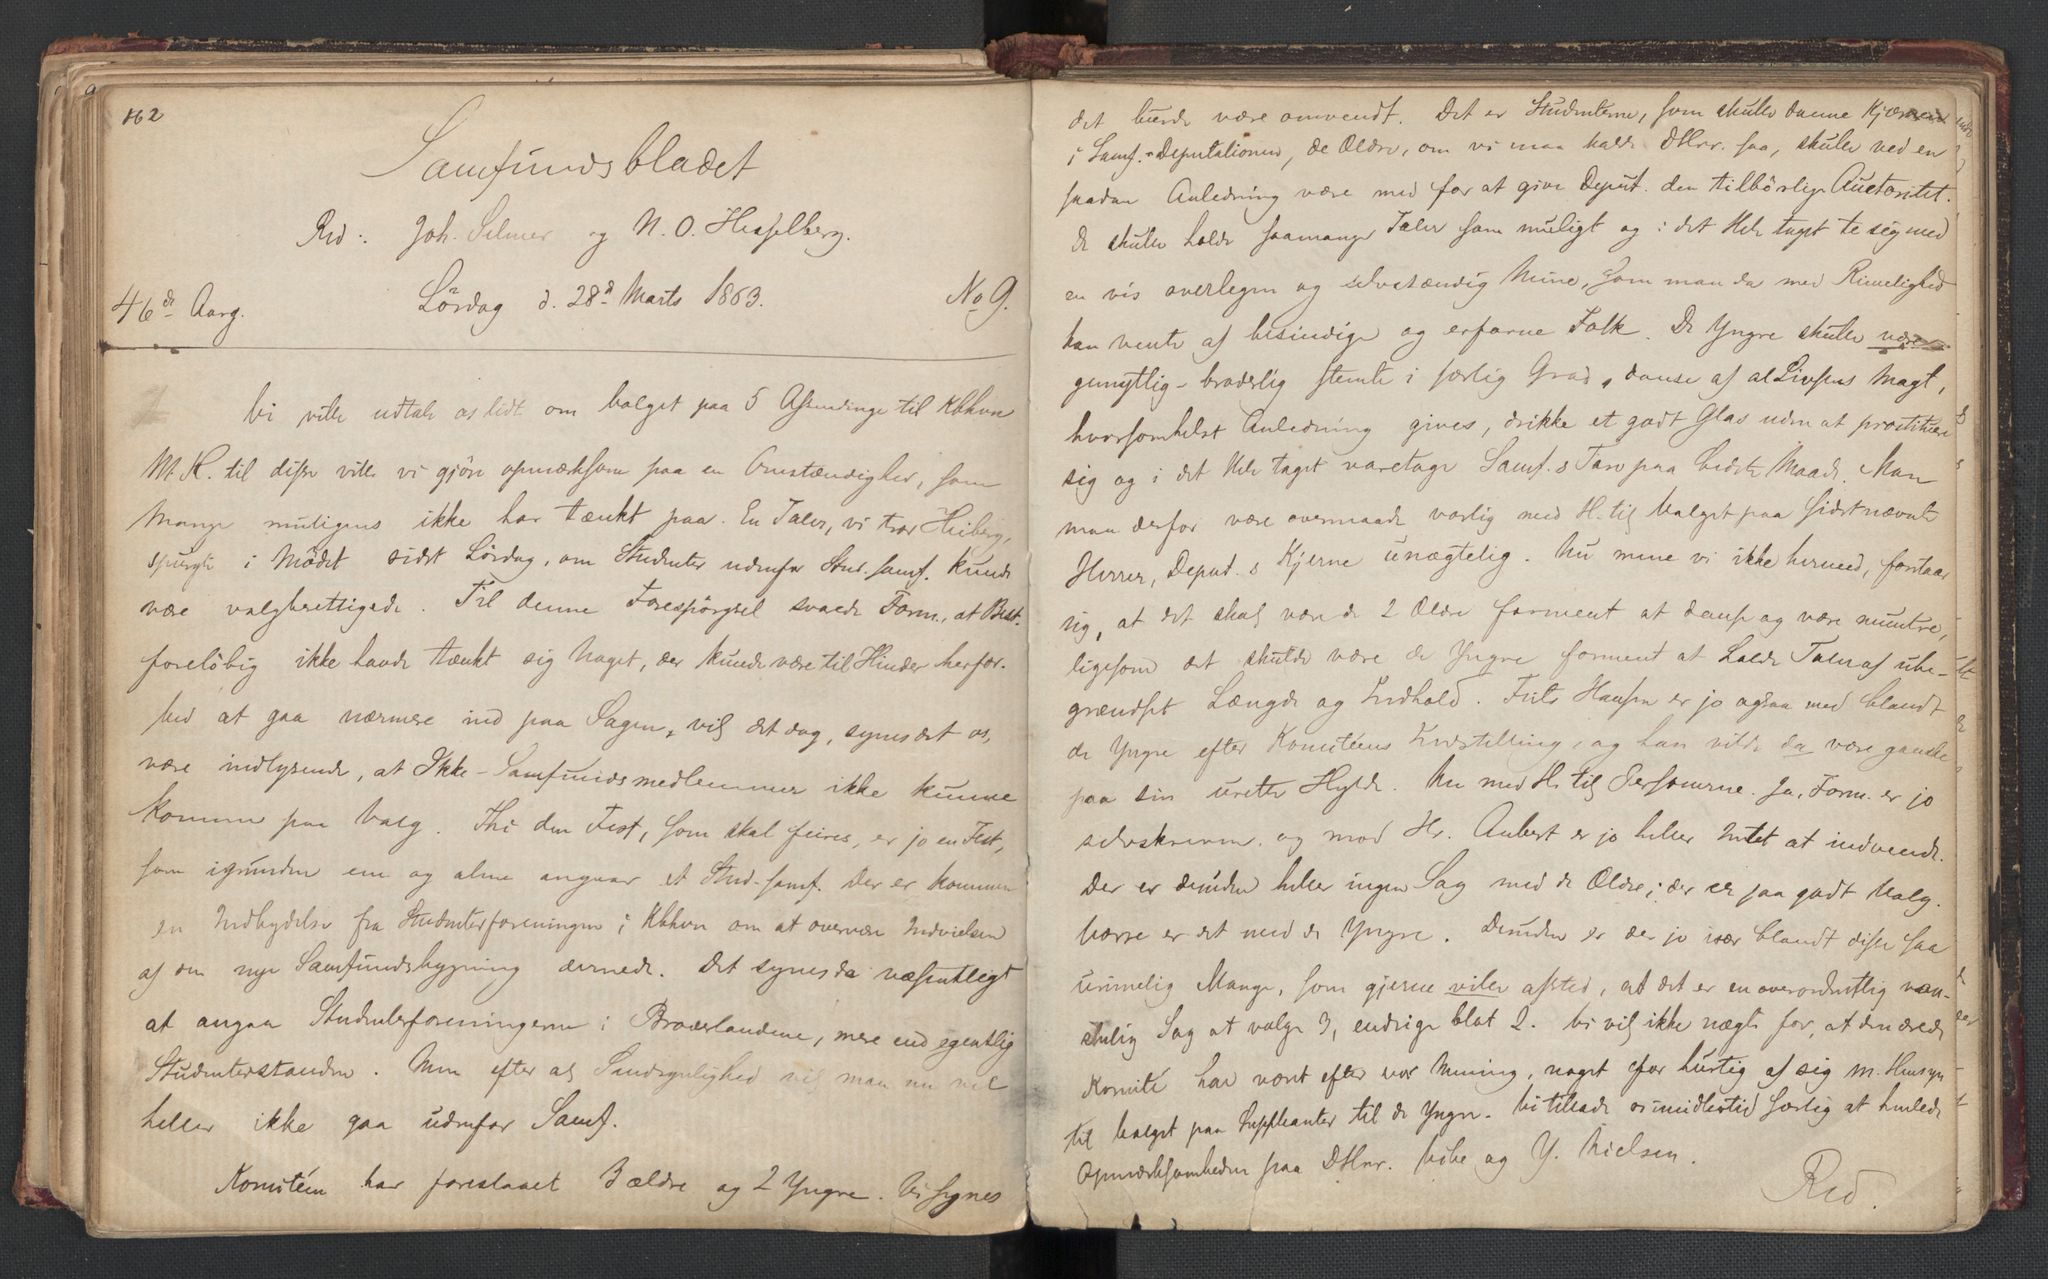 162
Samfundsbladet
Red.: Joh. Selmer og N. O. Hesselberg.
46de Aarg. Lördag d. 28d Marts 1863. No 9.
Vi ville udtale os lidt om Valget paa 5 Afsendinge til Kbhvn
M. H. til disse ville vi gjöre opmærksom paa en Omstændighed, som
Mange muligens ikke har tænkt paa. En Taler, vi tror Heiberg,
spurgte i Mödet sidst Lördag, om Studenter udenfor Stud. samf. kunde
være valgberettigede. Til denne Forespörgsel svarede Form., at Best.
foreløbig ikke havde tænkt sig Noget, der kunde være til Hinder herfor.
Ved at gaa nærmere ind paa Sagen, vil det dog, synes det os,
være indlysende, at Ikke-Samfundsmedlemmer ikke kunne
komme paa Valg. Thi den Fest, som skal feires, er jo en Fest,
som igrunden ene og alene angaar et Stud-samf. Der er kommen
en Indbydelse fra Studenterforeningen i Kbhvn om at overvære Indvielsen
af den nye Samfundsbygning dernede. Det synes da væsentligt
at angaa Studenterforeningerne i Broderlandene, mere end egentlig
Studenterstanden. Men efter al Sandsynlighed vil man nu vel
heller ikke gaa udenfor Samf.
Komitéen har foreslaaet 3 ældre og 2 Yngre. Vi synes
det burde være omvendt. Det er Studenterne, som skulle danne Kjærnen
i Samf.-Deputationen, de Ældre, om vi maa kalde DHrr. saa, skulle ved en
saadan Anledning være med for at give Deput. den tilbörlige Auctoritet.
De skulle holde saamange Taler som muligt og i det Hele taget te sig med
en vis overlegen og selvstændig Mine, som man da med Rimelighed
kan vente af besindige og erfarne Folk. De Yngre skulle være
gemytlig-broderlig stemte i særlig Grad, danse af al Livsens Magt,
hvorsomhelst Anledning gives, drikke et godt Glas uden at prostituere
sig og i det Hele taget varetage Samf.s Tarv paa bedste Maade. Man
maa derfor være overmaade varlig med H. til Valget paa sidstnævnte
Herrer, Deput.s Kjerne unægtelig. Nu mene vi ikke hermed, forstaar
sig, at det skal være de 2 Ældre forment at danse og være muntre,
ligesom det skulde være de Yngre forment at holde Taler af ube-
grændset Længde og Indhold. Frits Hansen er jo ogsaa med blandt
de Yngre efter Komitéens Indstilling, og han vilde da være ganske
paa sin urette Hylde. Nu med H. til Personerne. Ja, Form. er jo
selvskreven, og mod Hr. Aubert er jo heller Intet at indvende.
Der er desuden heller ingen Sag med de Ældre; der er saa godt Valg.
Værre er det med de Yngre. Desuden er der jo især blandt disse saa
urimelig Mange, som gjerne ville afsted, at det er en overordentlig van-
skelig Sag at vælge 3, endsige blot 2. Vi vil ikke nægte for, at den ærede
Komité har været efter vor Mening, noget for hurtig af sig m. Hensyn
til Valget paa Suppleanter til de Yngre. Vi tillade os imidlertid særlig at henlede
Opmærksomheden paa DHrr. Vibe og Y. Nielsen.
Red.